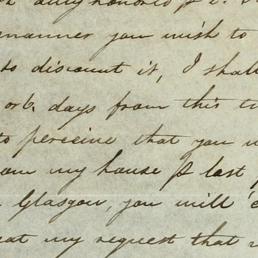 duly honored
manner you wish to
to discount it, I shall
or 6. days from this
to perceive that you
my house
Glasgow, you will
my request that